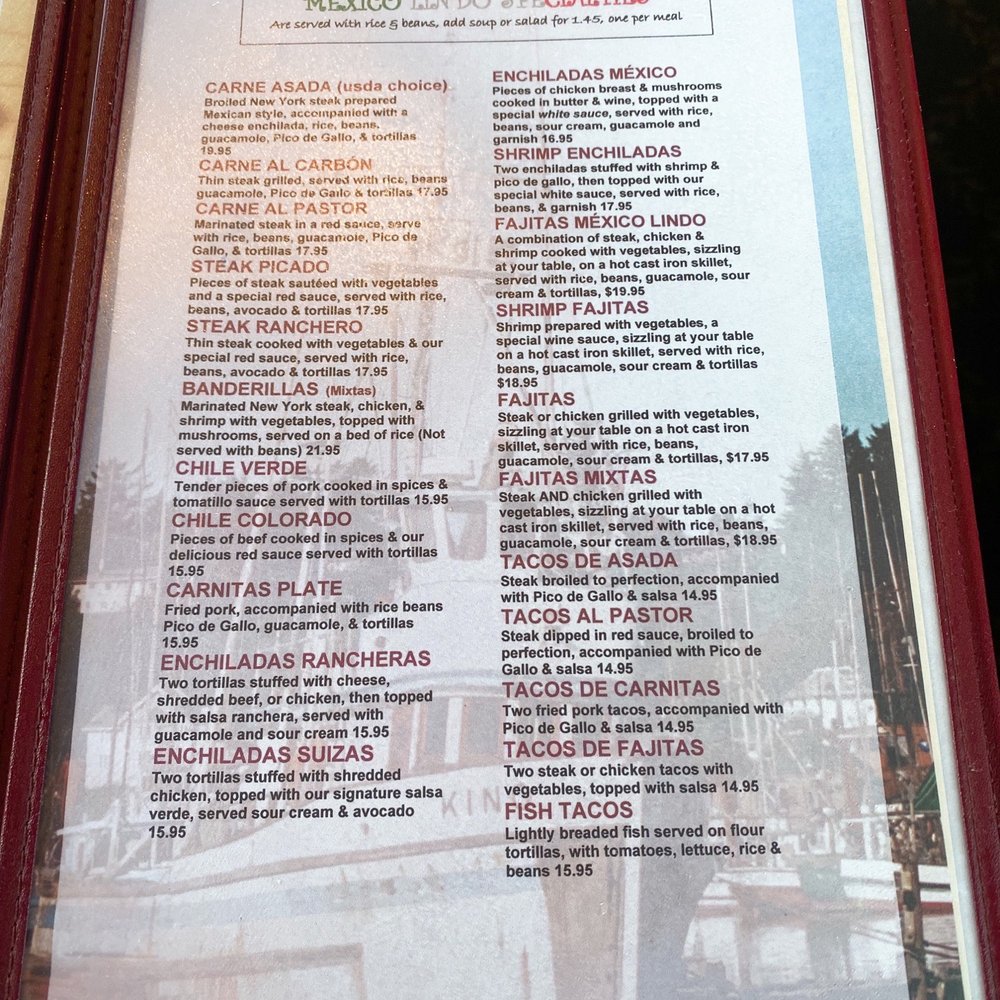 MEXICO LINDO SPECIALTIES
Are served with rice & beans, add soup or salad for 1.45, one per meal
CARNE ASADA (usda choice)
Broiled New York steak prepared
Mexican style, accompanied with a
cheese enchilada, rice, beans,
guacamole, Pico de Gallo, & tortillas
19.95
CARNE AL CARBÓN
Thin steak grilled, served with rice, beans
guacamole, Pico de Gallo & tortillas 17.95
CARNE AL PASTOR
Marinated steak in a red sauce, serve
with rice, beans, guacamole, Pico de
Gallo, & tortillas 17.95
STEAK PICADO
Pieces of steak sautéed with vegetables
and a special red sauce, served with rice,
beans, avocado & tortillas 17.95
STEAK RANCHERO
Thin steak cooked with vegetables & our
special red sauce, served with rice,
beans, avocado & tortillas 17.95
BANDERILLAS (Mixtas)
Marinated New York steak, chicken, &
shrimp with vegetables, topped with
mushrooms, served on a bed of rice (Not
served with beans) 21.95
CHILE VERDE
Tender pieces of pork cooked in spices &
tomatillo sauce served with tortillas 15.95
CHILE COLORADO
Pieces of beef cooked in spices & our
delicious red sauce served with tortillas
15.95
CARNITAS PLATE
Fried pork, accompanied with rice beans
Pico de Gallo, guacamole, & tortillas
15.95
ENCHILADAS RANCHERAS
Two tortillas stuffed with cheese,
shredded beef, or chicken, then topped
with salsa ranchera, served with
guacamole and sour cream 15.95
ENCHILADAS SUIZAS
Two tortillas stuffed with shredded
chicken, topped with our signature salsa
verde, served sour cream & avocado
15.95
ENCHILADAS MÉXICO
Pieces of chicken breast & mushrooms
cooked in butter & wine, topped with a
special white sauce, served with rice,
beans, sour cream, guacamole and
garnish 16.95
SHRIMP ENCHILADAS
Two enchiladas stuffed with shrimp &
pico de gallo, then topped with our
special white sauce, served with rice,
beans, & garnish 17.95
FAJITAS MÉXICO LINDO
A combination of steak, chicken &
shrimp cooked with vegetables, sizzling
at your table, on a hot cast iron skillet,
served with rice, beans, guacamole, sour
cream & tortillas, $19.95
SHRIMP FAJITAS
Shrimp prepared with vegetables, a
special wine sauce, sizzling at your table
on a hot cast iron skillet, served with rice,
beans, guacamole, sour cream & tortillas
$18.95
FAJITAS
Steak or chicken grilled with vegetables,
sizzling at your table on a hot cast iron
skillet, served with rice, beans,
guacamole, sour cream & tortillas, $17.95
FAJITAS MIXTAS
Steak AND chicken grilled with
vegetables, sizzling at your table on a hot
cast iron skillet, served with rice, beans,
guacamole, sour cream & tortillas, $18.95
TACOS DE ASADA
Steak broiled to perfection, accompanied
with Pico de Gallo & salsa 14.95
TACOS AL PASTOR
Steak dipped in red sauce, broiled to
perfection, accompanied with Pico de
Gallo & salsa 14.95
TACOS DE CARNITAS
Two fried pork tacos, accompanied with
Pico de Gallo & salsa 14.95
TACOS DE FAJITAS
Two steak or chicken tacos with
vegetables, topped with salsa 14.95
FISH TACOS
Lightly breaded fish served on flour
tortillas, with tomatoes, lettuce, rice &
beans 15.95
KIN